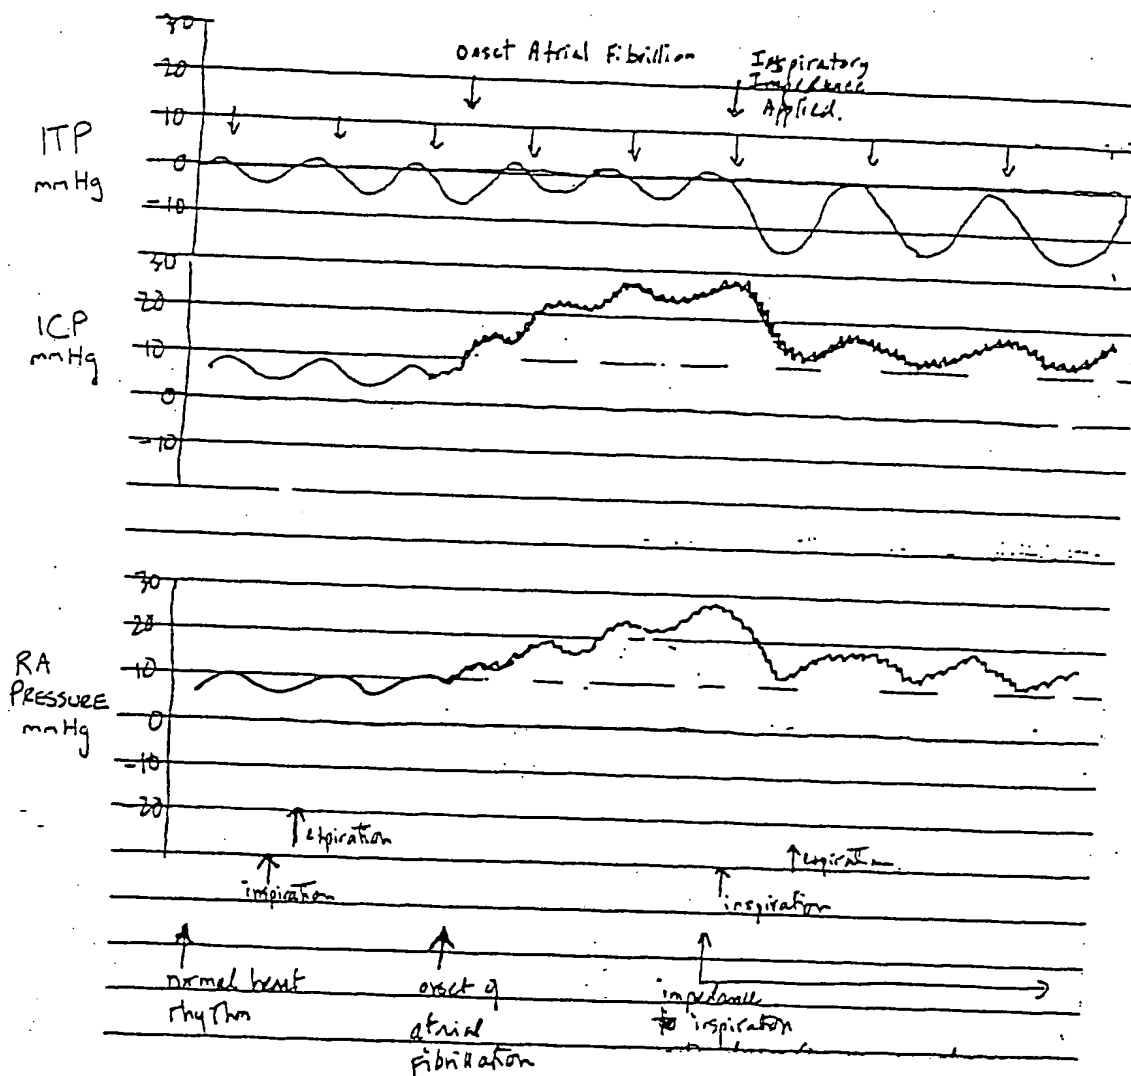 30
20
10
0
-10
ITP
mmHg
Onset Atrial Fibrillion
Inspiratory
Impedance
Applied.
30
20
10
0
-10
ICP
mmHg
30
20
10
0
-10
-20
RA
PRESSURE
mmHg
expiration
inspiration
expiration
inspiration
normal heart
rhythm
onset of
atrial
Fibrillation
impedance
to inspiration